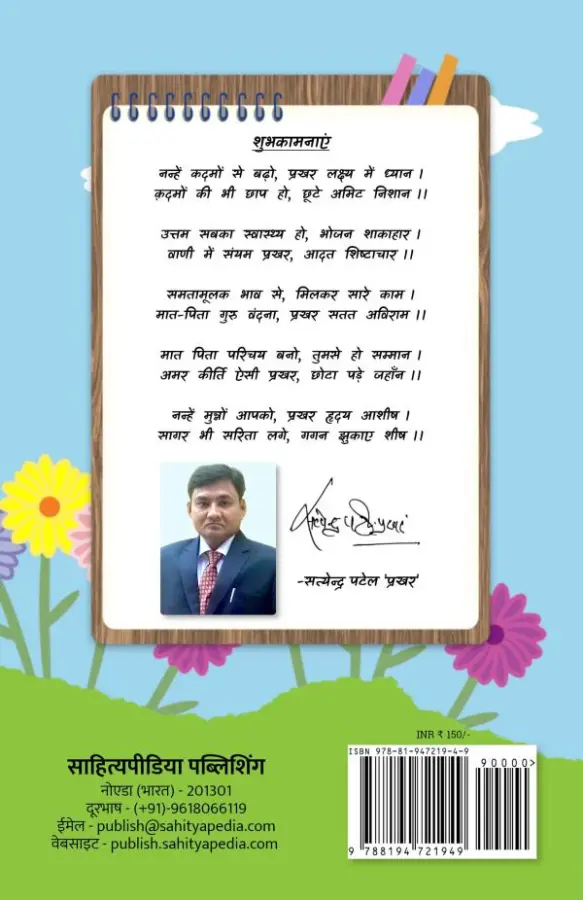 शुभकामनाएं
नन्हें कदमों से बढ़ो, प्रखर लक्ष्य में ध्यान ।
क़दमों की भी छाप हो, छूटे अमिट निशान ।।
उत्तम सबका स्वास्थ्य हो, भोजन शाकाहार ।
वाणी में संयम प्रखर, आदत शिष्टाचार ।।
समतामूलक भाव से, मिलकर सारे काम ।
मात-पिता गुरु वंदना, प्रखर सतत अविराम ।।
मात पिता परिचय बनो, तुमसे हो सम्मान ।
अमर कीर्ति ऐसी प्रखर, छोटा पड़े जहाँन ।।
नन्हें मुन्नों आपको, प्रखर हृदय आशीष ।
सागर भी सरिता लगे, गगन झुकाए शीष ।।
-सत्येन्द्र पटेल 'प्रखर'
INR ₹ 150/-
साहित्यपीडिया पब्लिशिंग
नोएडा (भारत) - 201301
दूरभाष - (+91)-9618066119
ईमेल - publish@sahityapedia.com
वेबसाइट - publish.sahityapedia.com
ISBN 978-81-947219-4-9
90000>
9 788194 721949